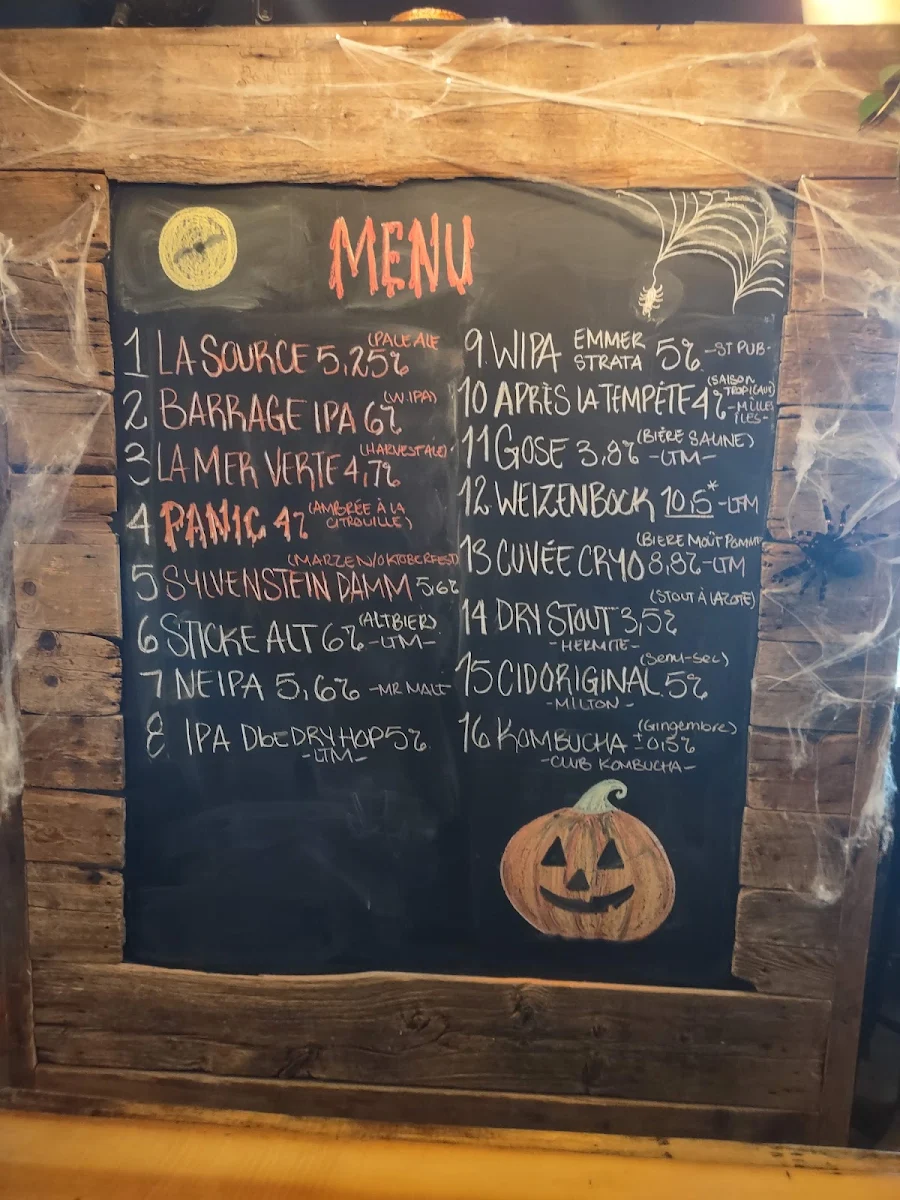 MENU
1 LA SOURCE 5,25% (PALE ALE
2 BARRAGE IPA 6% (W.IPA)
3 LA MER VERTE 4,7% (HARVEST ALE)
4 PANIC 4% (AMBRÉE À LA
CITROUILLE)
(MARZEN/OKTOBERFEST)
5 SYLVENSTEIN DAMM 5,6%
6 STICKE ALT 6% (ALTBIER)
-LTM-
7 NEIPA 5,6% -MR MALT-
8 IPA DbE DRY HOP 5%
-LTM-
9 WIPA EMMER
STRATA 5% -ST PUB-
10 APRÈS LA TEMPÊTE 4% (SAISON
TROPICALE)
-MILLES
ÎLES-
11 GOSE 3,8% (BIÈRE SALINE)
-LTM-
12 WEIZENBOCK 10,5* -LTM
(BIERE MOÛT POMME
13 CUVÉE CRYO 8,8% -LTM
(STOUT À L'AZOTE)
14 DRY STOUT 3,5%
-HERMITE-
(Semi-sec)
15 CID ORIGINAL 5%
-MILTON-
16 KOMBUCHA (Gingembre)
±0,5%
-CLUB KOMBUCHA-